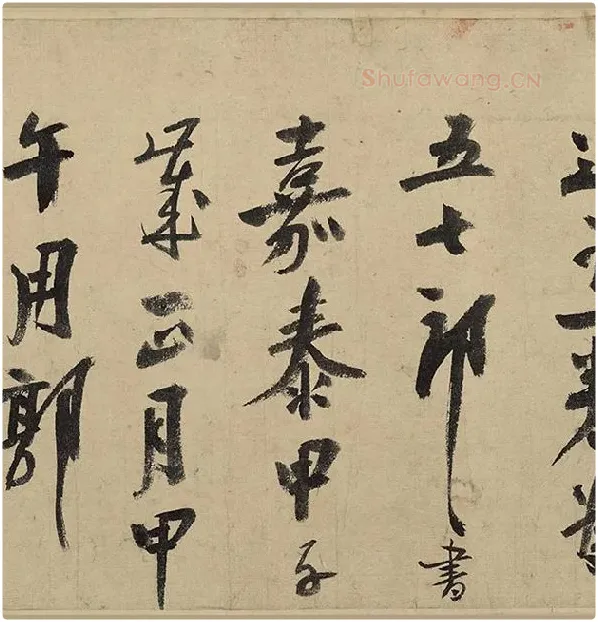 Shufawang.CN
五七郎書
嘉泰甲子
歲正月甲
午用郭